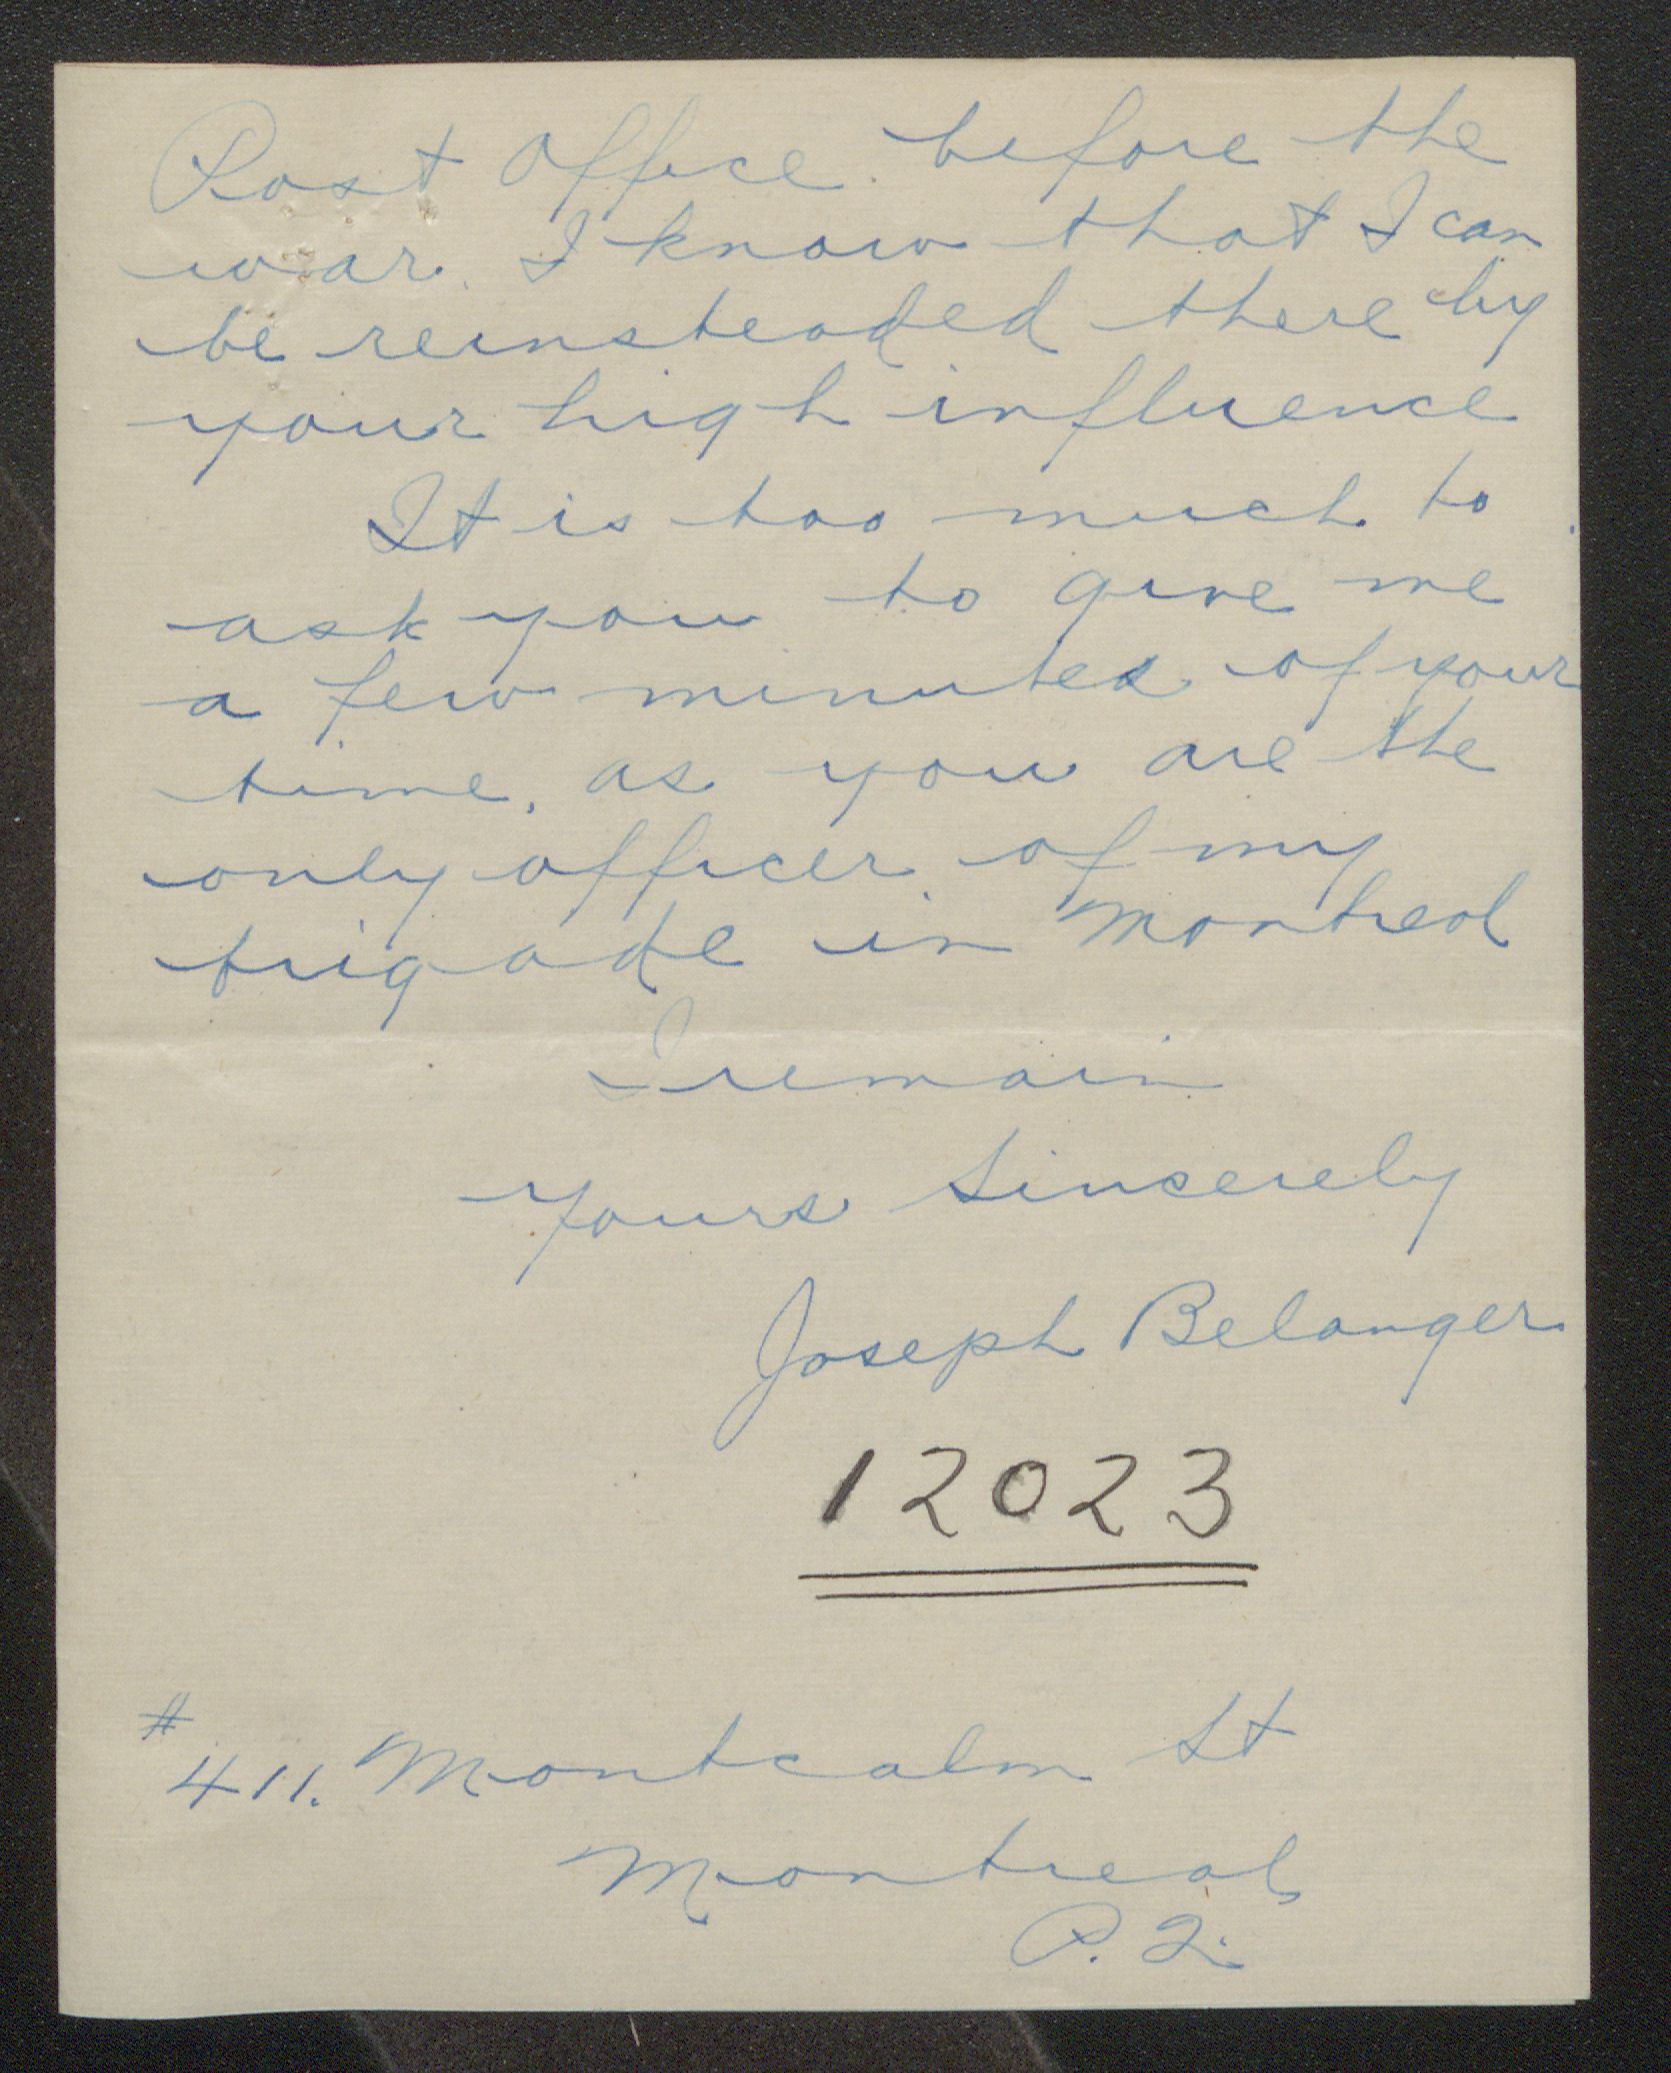 Post Office before the
war. I know that I can
be reinsteaded there by
your high influence
It is too much to
ask you to give me
a few minutes of your
time, as you are the
only officer of my
brigade in Montreal
I remain
Yours Sincerely
Joseph Belanger
12023
#
411. Montcalm St
Montreal
P. Q.